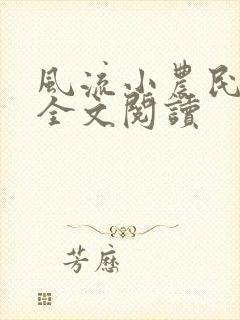 風流小農民
全文閱讀
芳歷